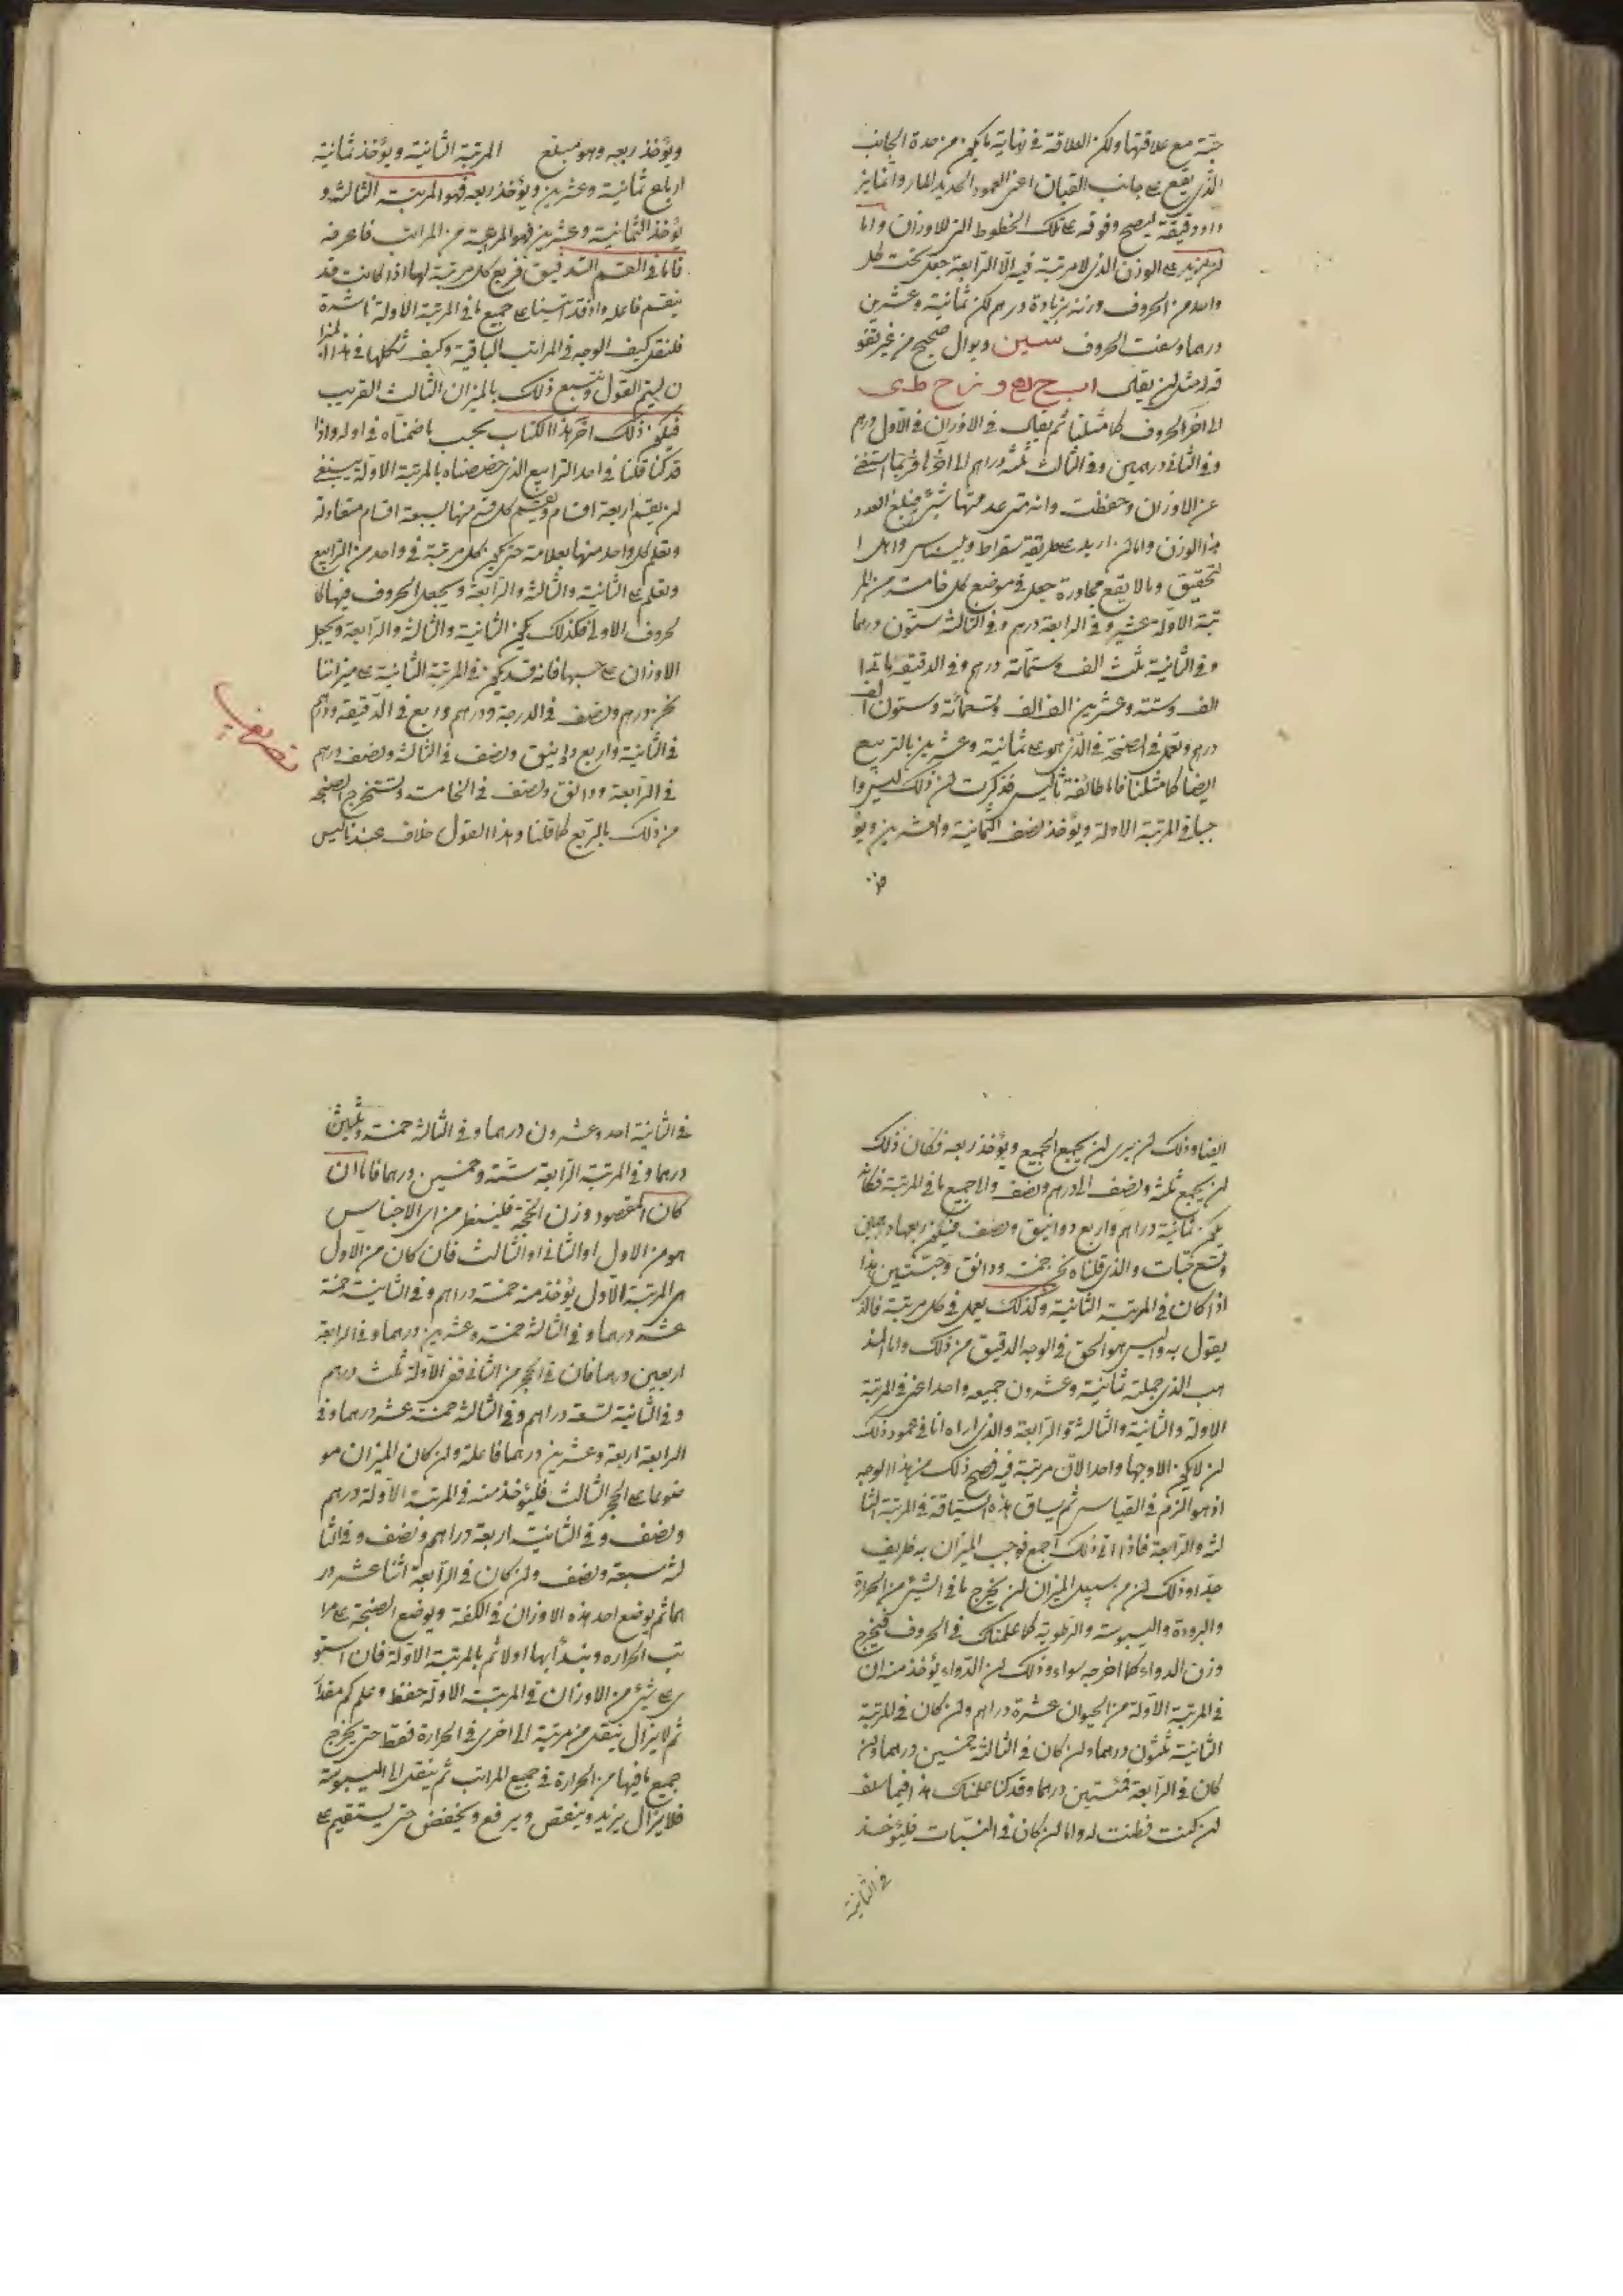 حبة مع علاقتها ولكن العلاقة في نهاية ما يكون من حدة الجانب
الذي يقع على جانب القبان اعني العمود الحديد المار واتمايز
ودقيقة ليصح وقوفه على تلك الخطوط التي للاوزان واما
لن يزيد على الوزن الذي لا مرتبة فيه الا الرابعة جعل تحت كل
واحد من الحروف وزنه بزيادة درهم لكن ثمانية وعشرين
درهما وسعت الحروف سين ودال صحيح من غير تقو
قد امثل لن يقال ا ب ج د ه و ز ح ط ى
الى اخر الحروف كما مثلنا ثم يقال في الاوزان في الاول درهم
وفي الثاني درهمين وفي الثالث ثلثة دراهم الى اخرها فربما استغنى
عن الاوزان وحفظت وانه متى عد منها شئ فبلغ العدد
هذا الوزن واما لن اريد على طريقة سقراط وبليناس واهل ا
لتحقيق وما لا يقع مجاورة جعل في موضع كل خامسة من المر
تبة الاولة عشر وفي الرابعة درهم وفي الثالثة ستون درهما
وفي الثانية ثلث الف وستمائة درهم وفي الدقيقة
الف وستة وعشرين الف الف وتسعمائة وستون الف
درهم وتعمل في الصنجة في الذي هو على ثمانية وعشرين بالتربيع
ايضا كما مثلنا فاما طائفة ثاليس فذكرت لن ذلك ليس وا
جبا في المرتبة الاولة ويؤخذ نصف الثمانية والعشرين ويؤ
ويؤخذ ربعه وهو مبلغ المرتبة الثانية ويؤخذ ثمانية
ارباع ثمانية وعشرين ويؤخذ ربعه فهو المرتبة الثالثة و
يؤخذ الثمانية وعشرين فهو المرتبة من المراتب فاعرفه
فاما في القسم التدقيق فربع كل مرتبة لها اذا كانت قد
ينقسم فاعله واذ قد اتينا على جميع ما في المرتبة الاولة ناشدة
فلنقل كيف الوجه في المراتب الباقية وكيف شكلها في هذا الميزا
ن ليتم القول ونتبع ذلك بالميزان الثالث القريب
فيكون ذلك اخر هذا الكتاب بحسب ما ضمناه في اوله واذا
قد كنا قلنا في احد الترابيع الذي خصصناه بالمرتبة الاولة ينبغي
لن يقسم اربعة اقسام ويقسم كل قسم منها لسبعة اقسام متعادلة
وتعلم كل واحد منها بعلامة حتى يكون كل مرتبة في واحد من الترابيع
وتعلم على الثانية والثالثة والرابعة ويجعل الحروف فيها كا
لحروف الاولى فكذلك يكون الثانية والثالثة والرابعة ويجعل
الاوزان على حسبها فانه قد يكون في المرتبة الثانية على ميزاننا
نحن درهم ونصف في الدرجة ودرهم واربع في الدقيقة ودرهم
في الثانية واربع دوانيق ونصف في الثالثة ونصف درهم
في الرابعة ودانق ونصف في الخامسة وتستخرج الصنجة
من ذلك بالتربيع كما قلنا وهذا القول خلاف عند ثاليس
ايضا وذلك لن يرى لن يجمع الجميع ويؤخذ ربعه فكان ذلك
لن يجمع ثلثة ونصف الى درهم ونصف والى جميع ما في المرتبة فكانه
يكون ثمانية دراهم واربع دوانيق ونصف فيكون ربعها درهمين
وتسع حبات والذي قلناه نحن خمسة ودانق وحبتين هذا
اذا كان في المرتبة الثانية وكذلك يعمل في كل مرتبة فالذي
يقول به واليس هو الحق في الوجه الدقيق من ذلك واما المذ
هب الذي جملته ثمانية وعشرون جميعه واحدا عن في المرتبة
الاولة والثانية والثالثة والرابعة والذي اراه انا في حمود ذلك
لن لا يكون الا وجها واحدا لان مرتبة فيه فصح ذلك من هذا الوجه
اذ هو الزم في القياس ثم يساق هذه السياقة في المرتبة الثا
لثة والرابعة فاذا اتى ذلك اجمع فوجب الميزان به ظريف
جدا وذلك لن من سبيل الميزان لن يخرج ما في الشئ من الحرارة
والبرودة واليبوسة والرطوبة كما علمناك في الحروف فيخرج
وزن الدواء كما اخرجه سواء وذلك لن الدواء يؤخذ منه ان
في المرتبة الاولة من الحيوان عشرة دراهم ولن كان في المرتبة
الثانية ثلثون درهما ولن كان في الثالثة خمسين درهما ولن
كان في الرابعة فمئتين درهما وقد كنا علمناك هذا فيما سلف
لن كنت فطنت له واما لن كان في النبات فليؤخذ
في الثانية
في الثانية احد وعشرون درهما وفي الثالثة خمسة وثلثين
درهما وفي المرتبة الرابعة ستة وخمسين درهما فاما ان
كان المقصود وزن الحجر فلينظر من اى الاجناس
هو من الاول او الثاني او الثالث فان كان من الاول
في المرتبة الاول يؤخذ منه خمسة دراهم وفي الثانية خمسة
عشر درهما وفي الثالثة خمسة وعشرين درهما وفي الرابعة
اربعين درهما فان في الحجر من الثاني ففي الاولة ثلث درهم
وفي الثانية تسعة دراهم وفي الثالثة خمسة عشر درهما وفي
الرابعة اربعة وعشرين درهما فاعله ولن كان الميزان مو
ضوعا على الحجر الثالث فليؤخذ منه في المرتبة الاولة درهم
ونصف وفي الثانية اربعة دراهم ونصف وفي الثا
لثة سبعة ونصف ولن كان في الرابعة اثنا عشر در
هما ثم يوضع احد هذه الاوزان في الكفة ويوضع الصنجة على مرا
تب الحرارة ويبتدأ بها اولا ثم بالمرتبة الاولة فان استو
ى على شئ من الاوزان في المرتبة الاولة حفظ وعلم كم مقدا
ثم لا يزال ينقل من مرتبة الى اخرى في الحرارة فقط حتى يخرج
جميع ما فيها من الحرارة في جميع المراتب ثم ينقل الى اليبوسة
فلا يزال يزيد وينقص ويرفع ويخفض حتى يستقيم على